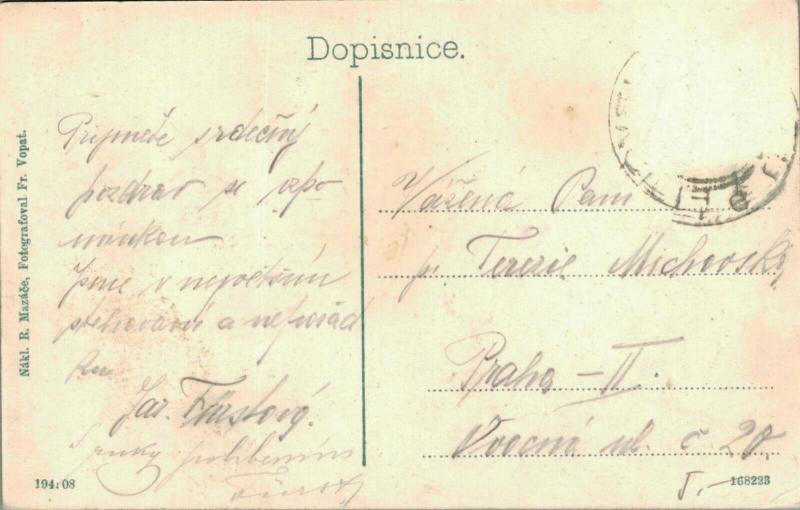 Dopisnice.
Nákl. R. Mazáče, Fotografoval Fr. Vopat.
Prijměte srdečný
pozdrav se vzpo
mínkou
Jsme v největším
stěhování a nepořád
ku
Jar. Fürstový.
ruky políbením
Fürst
Vážená Paní
pí. Terezie Michovský
Praha-II.
Ovocná ul. č 20.
194:08
168223